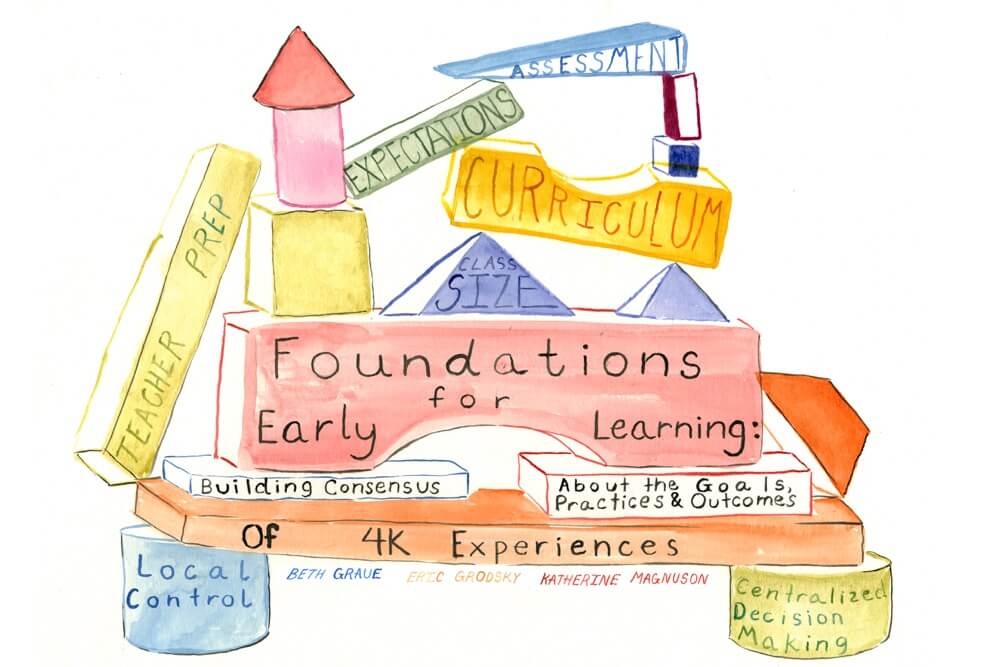 ASSESSMENT
EXPECTATIONS
CURRICULUM
TEACHER PREP
CLASS
SIZE
Foundations
for
Early Learning:
Building Consensus
About the Goals,
Practices & Outcomes
Of 4K Experiences
Local
Control
BETH GRAUE ERIC GRODSKY KATHERINE MAGNUSON
Centralized
Decision
Making